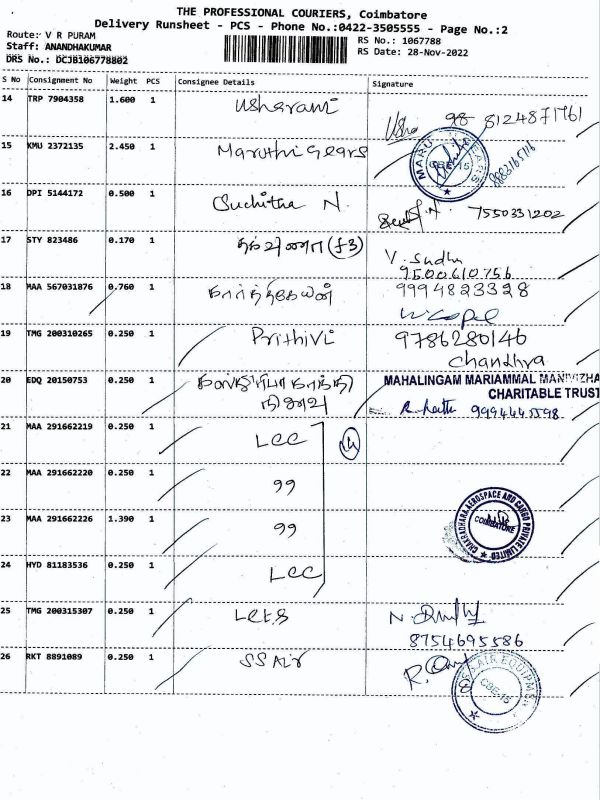 THE PROFESSIONAL COURIERS, Coimbatore
Delivery Runsheet - PCS - Phone No.:0422-3505555 - Page No.:2
Route: V R PURAM
RS No.: 1067788
Staff: ANANDHAKUMAR
RS Date: 28-Nov-2022
DRS No.: DCJB106778802
S No Consignment No Weight PCS Consignee Details Signature
14 TRP 7904358 1.600 1 Usharani Usha 98 8124871761
15 KMU 2372135 2.450 1 Maruthi Gears
16 DPI 5144172 0.500 1 Suchitha N. 7550331202
17 STY 823486 0.170 1 (f3) V. Sudha
9500610756
18 MAA 567031876 0.760 1 கார்த்திகேயன் 9994823328
19 TMG 200310265 0.250 1 Prithivi 9786280146
Chandhra
20 EDQ 20150753 0.250 1 MAHALINGAM MARIAMMAL MANIVIZHA
CHARITABLE TRUST
9994445598
21 MAA 291662219 0.250 1 LCC 14
22 MAA 291662220 0.250 1 99
23 MAA 291662226 1.390 1 99
CHAKRADHARA AEROSPACE AND CARGO PRIVATE LIMITED
COIMBATORE
24 HYD 81183536 0.250 1 LCC
25 TMG 200315307 0.250 1 8754695586
26 RKT 8891089 0.250 1 SS Air
CBE-15